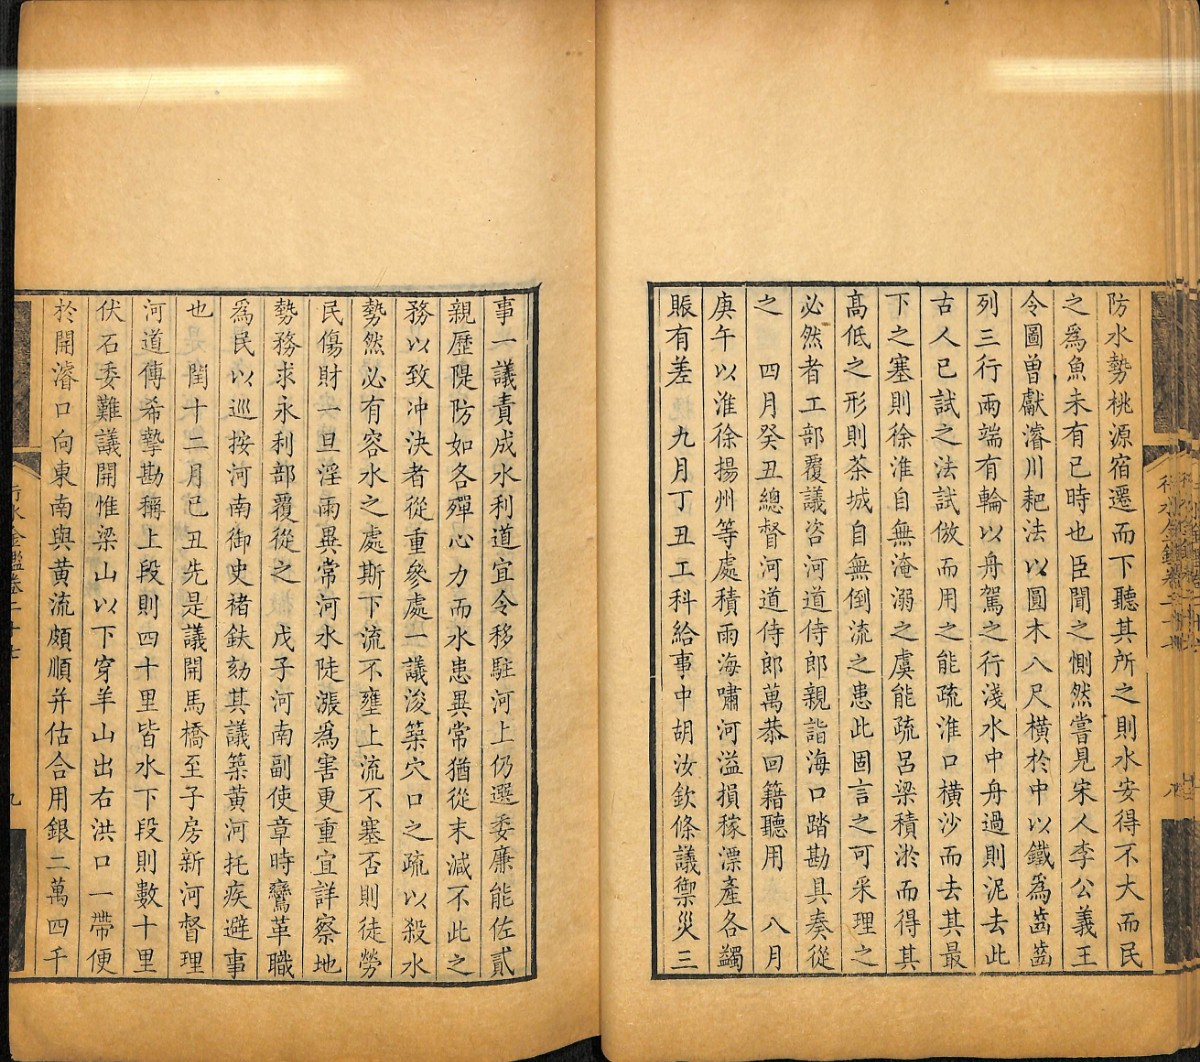 防水勢桃源宿遷而下聽其所之則水安得不大而民
之爲魚未有已時也臣聞之惻然嘗見宋人李公義王
令圖曽獻濬川耙法以圓木八尺橫於中以鐵爲齒齒
列三行兩端有輪以舟駕之行淺水中舟過則泥去此
古人已試之法試倣而用之能疏淮口橫沙而去其最
下之塞則徐淮自無淹溺之虞能疏呂梁積淤而得其
髙低之形則茶城自無倒流之患此固言之可采理之
必然者工部覆議咨河道侍郎親詣海口踏勘具奏從
之　四月癸丑總督河道侍郎萬恭回籍聽用　八月
庚午以淮徐揚州等處積雨海嘯河溢損稼漂產各蠲
賑有差　九月丁丑工科給事中胡汝欽條議禦災三
事一議責成水利道宜令移駐河上仍選委廉能佐貳
親歷隄防如各殫心力而水患異常猶從末減不此之
務以致冲決者從重參處一議浚築穴口之疏以殺水
勢然必有容水之處斯下流不壅上流不塞否則徒勞
民傷財一旦淫雨異常河水陡漲爲害更重宜詳察地
勢務求永利部覆從之　戊子河南副使章時鸞革職
爲民以巡按河南御史褚鈇劾其議築黃河托疾避事
也　閏十二月已丑先是議開馬橋至子房新河督理
河道傳希摯勘稱上段則四十里皆水下段則數十里
伏石委難議開惟梁山以下穿羊山出右洪口一帶便
於開濬口向東南與黃流頗順并估合用銀二萬四千
行水金鑑卷二十七
九